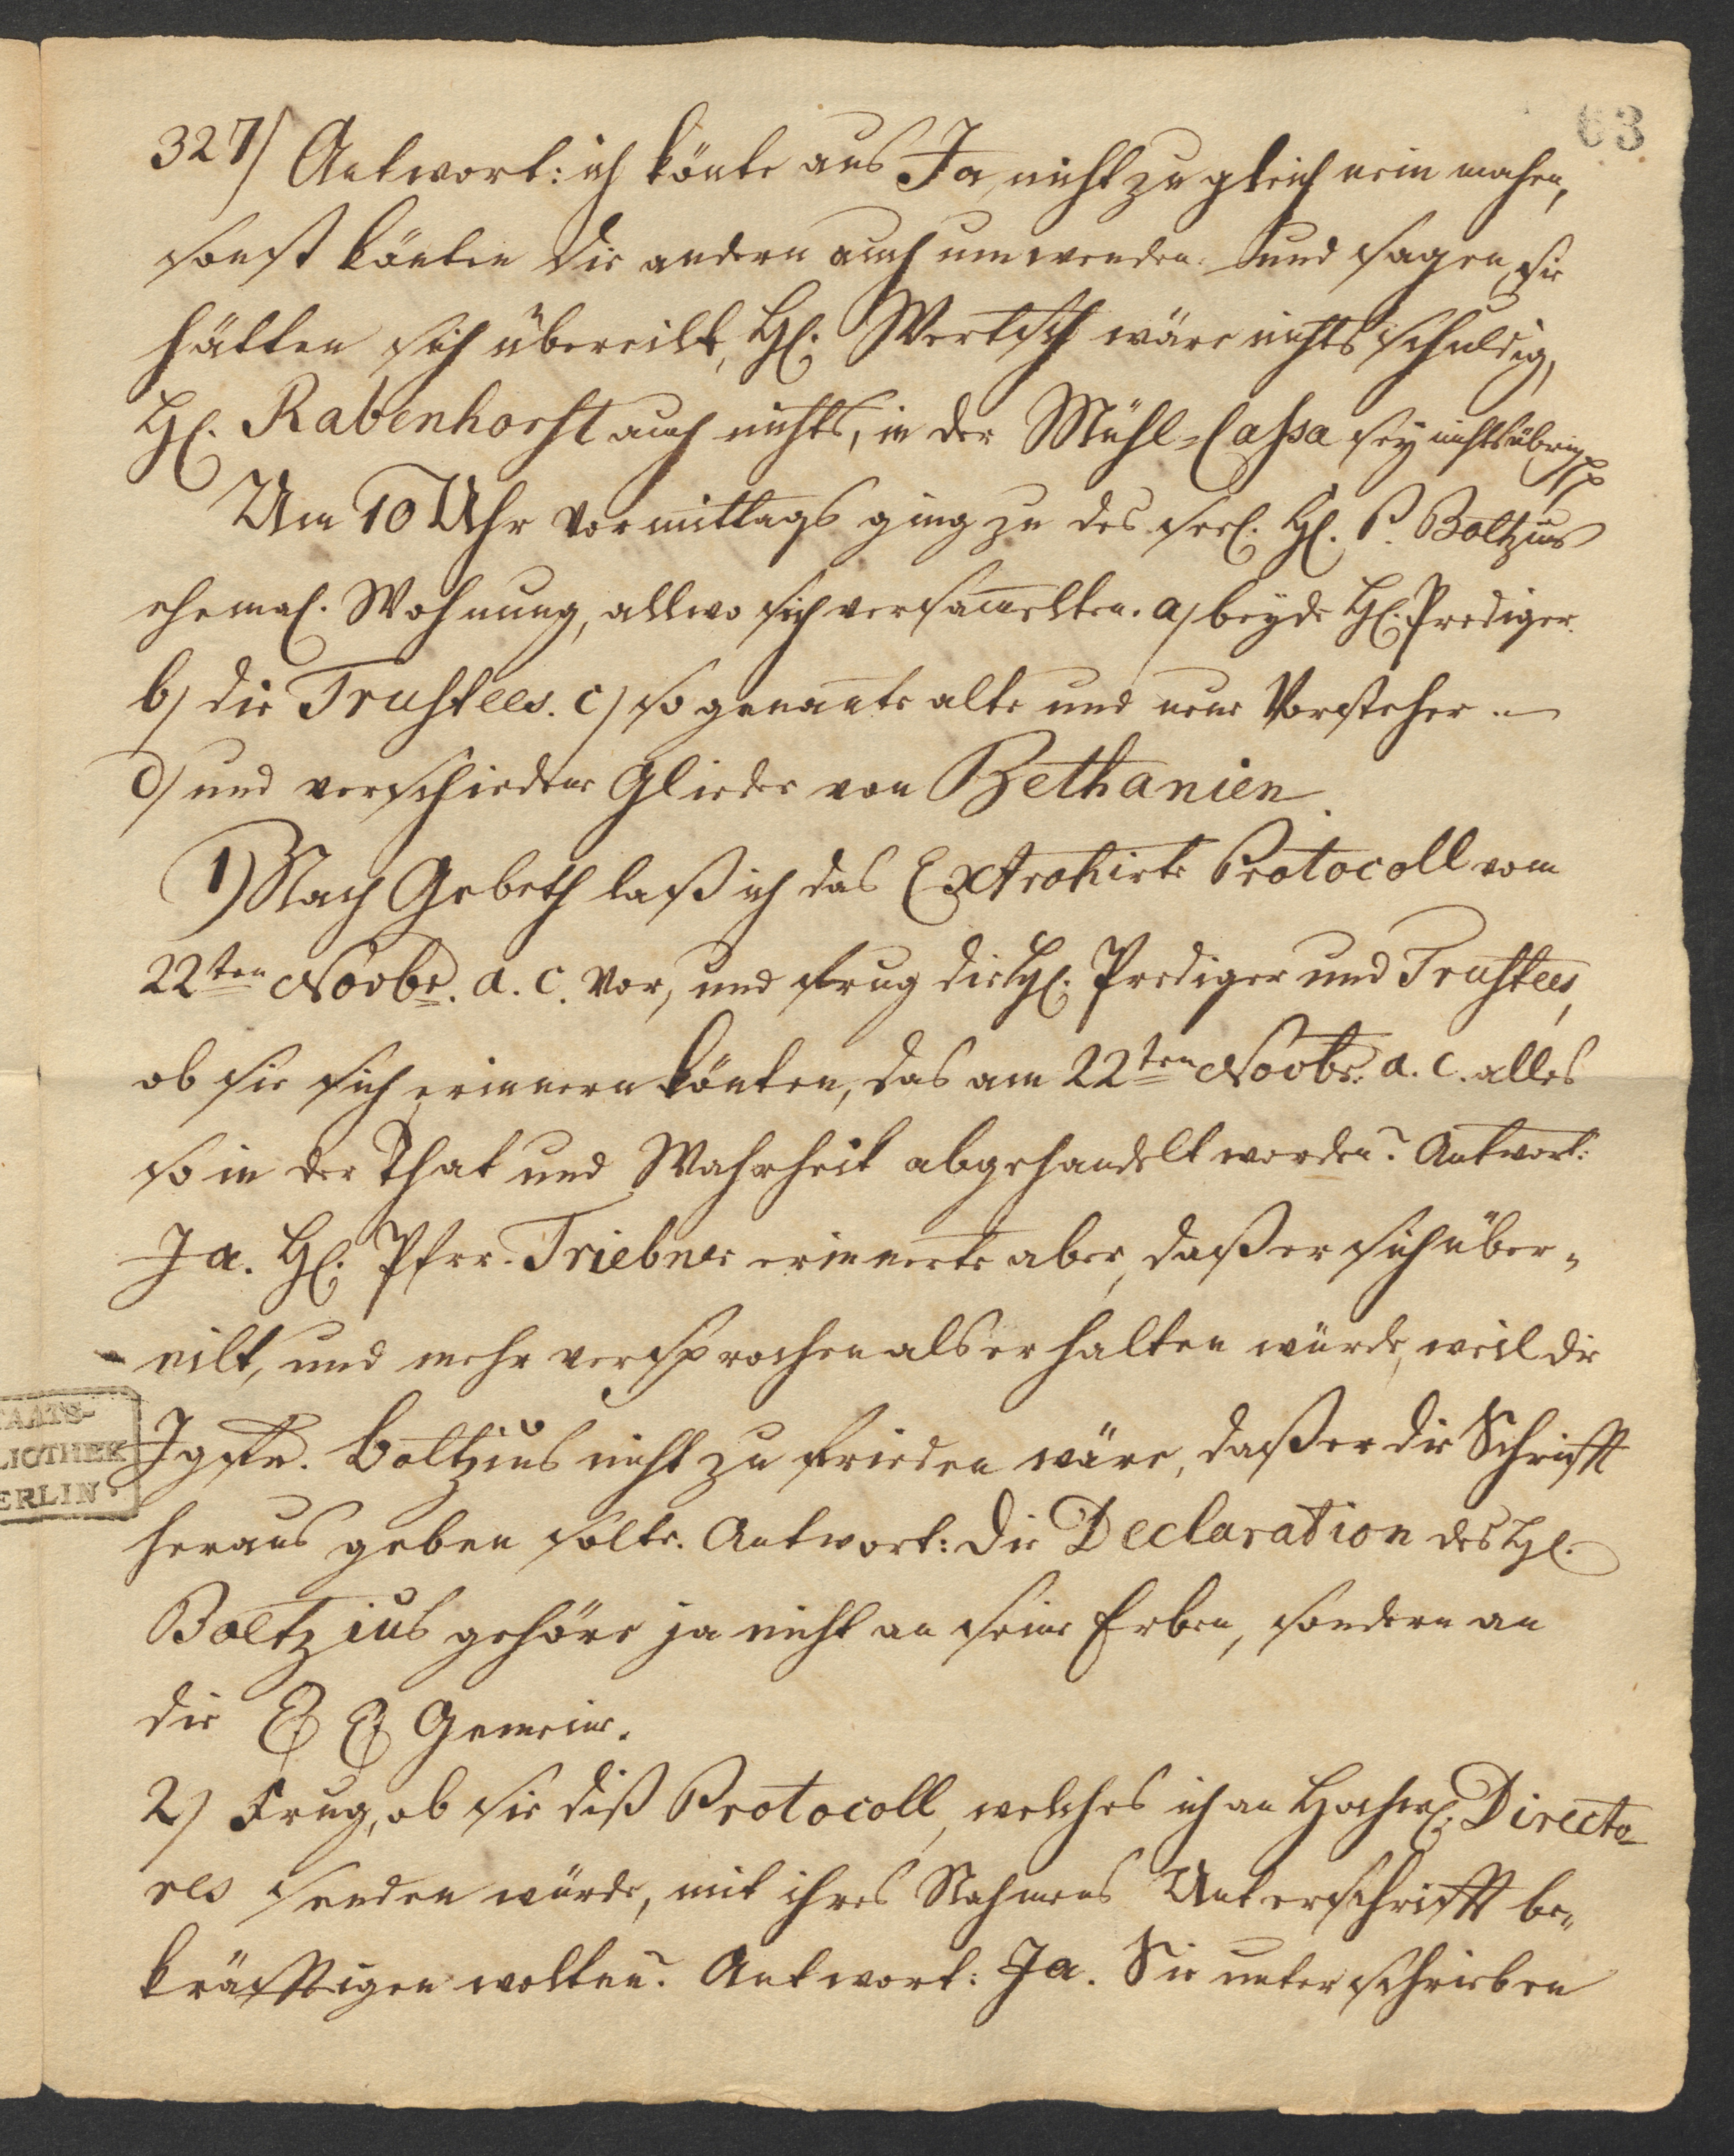 63
327) Antwort: ich könte aus Ja, nicht zugleich nein machen,
sonst könten die andern auch umwenden und sagen, sie
hätten sich übereilt, H. Wertsch wäre nichts schuldig,
H. Rabenhorst auch nichts, in der Mühl-Cassa sey nichts übrig pp
Um 10 Uhr Vormittags ging zu des seel. H. P. Boltzius
ehemal. Wohnung, allwo sich versam̅elten. a) beyde H. Prediger.
b) die Trustees. c) so genan̅te alte und neue Vorsteher.
d) und verschiedene Glieder von Bethanien.
1) Nach Gebeth laß ich das Extrahirte Protocoll vom
22ten Novbr. a. c. vor, und frug die H. Prediger und Trustees,
ob sie sich erinnern könten, das am 22ten Novbr. a. c. alles
so in der That und Wahrheit abgehandelt worden? Antwort:
Ja. H. Pfrr. Triebner erinnerte aber, daß er sich über-
eilt, und mehr versprochen als er halten würde, weil die
Jgfr. Boltzius nicht zu frieden wäre, daß er die Schrifft
heraus geben solte. Antwort: die Declaration des H.
Boltzius gehöre ja nicht an seine Erben, sondern an
die E E Gemeine.
2) Frug, ob sie diß Protocoll, welches ich an Hochw. Directo-
res senden würde, mit ihres Nahmens Unterschrifft be-
kräfftigen wolten? Antwort: Ja. Sie unterschrieben
TAATS-
LIOTHEK
ERLIN